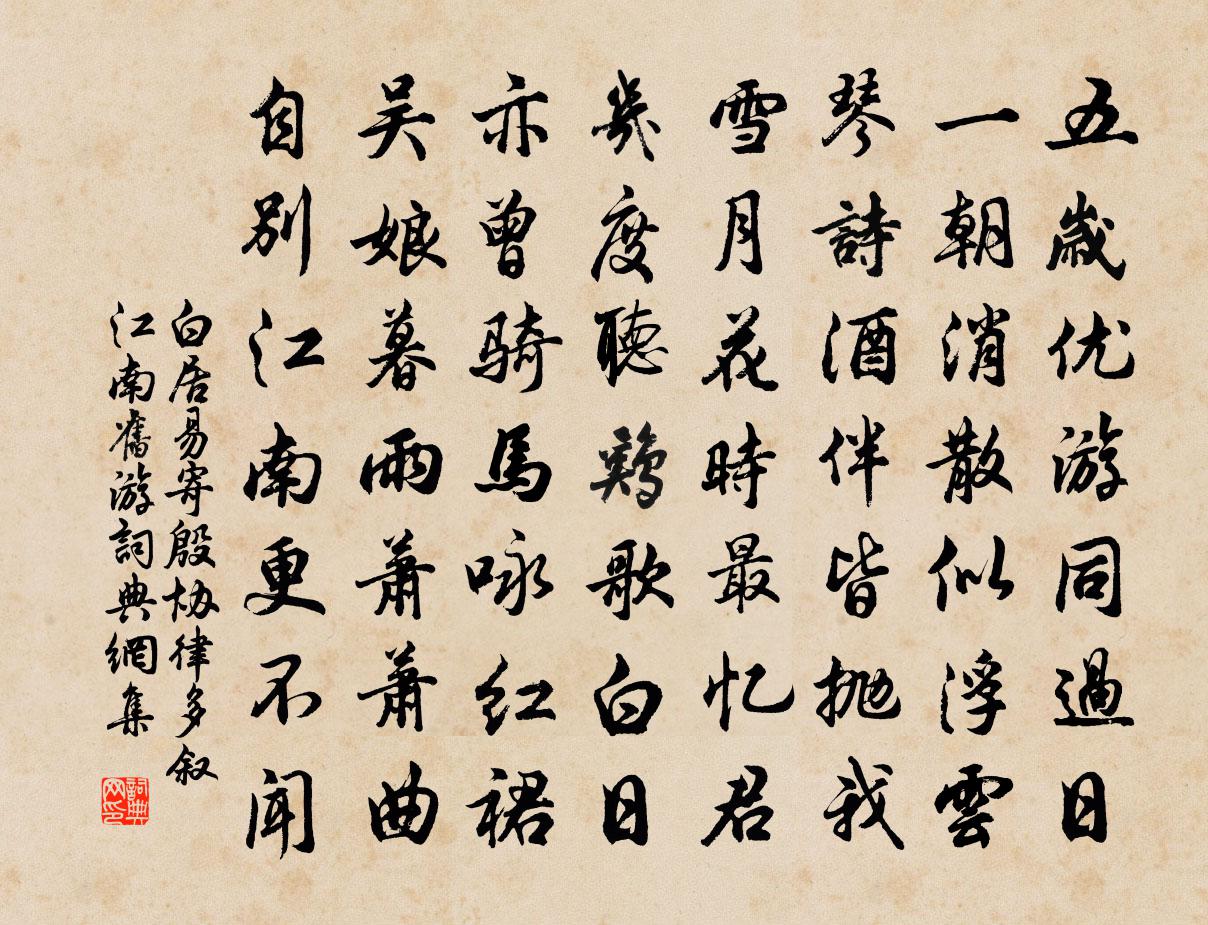 五歲优游同過日
一朝消散似浮雲
琴詩酒伴皆抛我
雪月花時最忆君
幾度聽鷄歌白日
亦曾騎馬咏红裙
吴娘暮雨萧萧曲
自别江南更不闻
白居易寄殷协律多叙
江南舊游詞典網集
詞典
网印